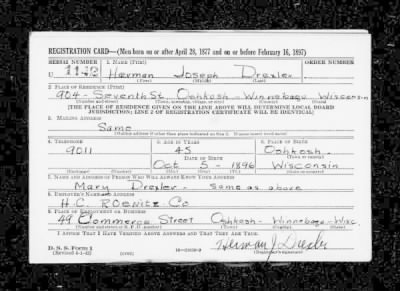 REGISTRATION CARD—(Men born on or after April 28, 1877 and on or before February 16, 1897)
SERIAL NUMBER 1. NAME (Print) ORDER NUMBER
U Herman Joseph Drexler
(First) (Middle) (Last)
2. PLACE OF RESIDENCE (Print)
904 - Seventh St. Oshkosh - Winnebago - Wisconsin
(Number and street) (Town, township, village, or city) (County) (State)
[THE PLACE OF RESIDENCE GIVEN ON THE LINE ABOVE WILL DETERMINE LOCAL BOARD
JURISDICTION; LINE 2 OF REGISTRATION CERTIFICATE WILL BE IDENTICAL]
3. MAILING ADDRESS
Same
[Mailing address if other than place indicated on line 2. If same insert word same]
4. TELEPHONE 5. AGE IN YEARS PLACE OF BIRTH
9011 45 Oshkosh.
DATE OF BIRTH (Town or county)
Oct 5 - 1896 Wisconsin
(Mo.) (Day) (Yr.) (State or country)
7. NAME AND ADDRESS OF PERSON WHO WILL ALWAYS KNOW YOUR ADDRESS
Mary Drexler - same as above
8. EMPLOYER'S NAME AND ADDRESS
H.C. Roenitz Co
9. PLACE OF EMPLOYMENT OR BUSINESS
49 Commerce Street Oshkosh - Winnebago - Wisc.
(Number and street or R. F. D. number) (Town) (County) (State)
I AFFIRM THAT I HAVE VERIFIED ABOVE ANSWERS AND THAT THEY ARE TRUE.
D. S. S. Form 1
(Revised 4-1-42) (over)
Herman J Drexler